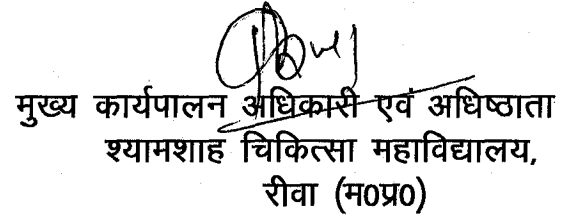 मुख्य कार्यपालन अधिकारी एवं अधिष्ठाता
श्यामशाह चिकित्सा महाविद्यालय,
रीवा (म0प्र0)